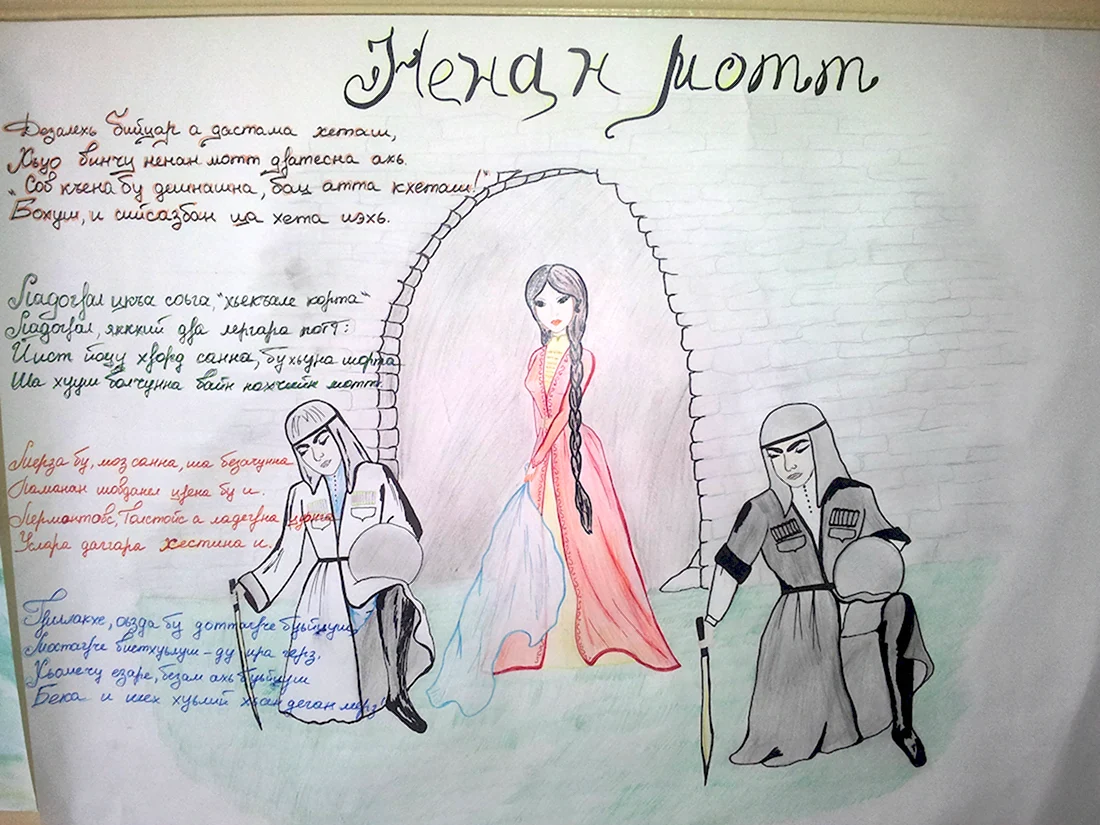 Ненан мотт
Дозалехь бийцар а дастама хеташ,
Хьуо винчу ненан мотт дӏатесна ахь.
"Сов къена бу дешнашна, бац атта кхеташ!"
Бохуш, и сийсазбан ца хета эхь.
Ладогӏал цкъа соьга, "хьекъале корта"
Ладогӏал, яккхий дӏа лергара потт:
Йист йоцу хӏорд санна, бу хьуна шорта
Ша хууш волчунна вайн нохчийн мотт.
Мерза бу, моз санна, ша безачунна
Ломанан шовданел цӏена бу и.
Лермонтовс, Толстойс а ладегӏна цуьнга
Услара даггара хестина и.
Гӏиллакхе, оьзда бу доттагӏче буьйцуш,
Мостагӏче вистхуьлуш - ду ира герз.
Хьомечу езаре, безам ахь буьйцуш
Бека и шех хуьлий хьан деган мерз